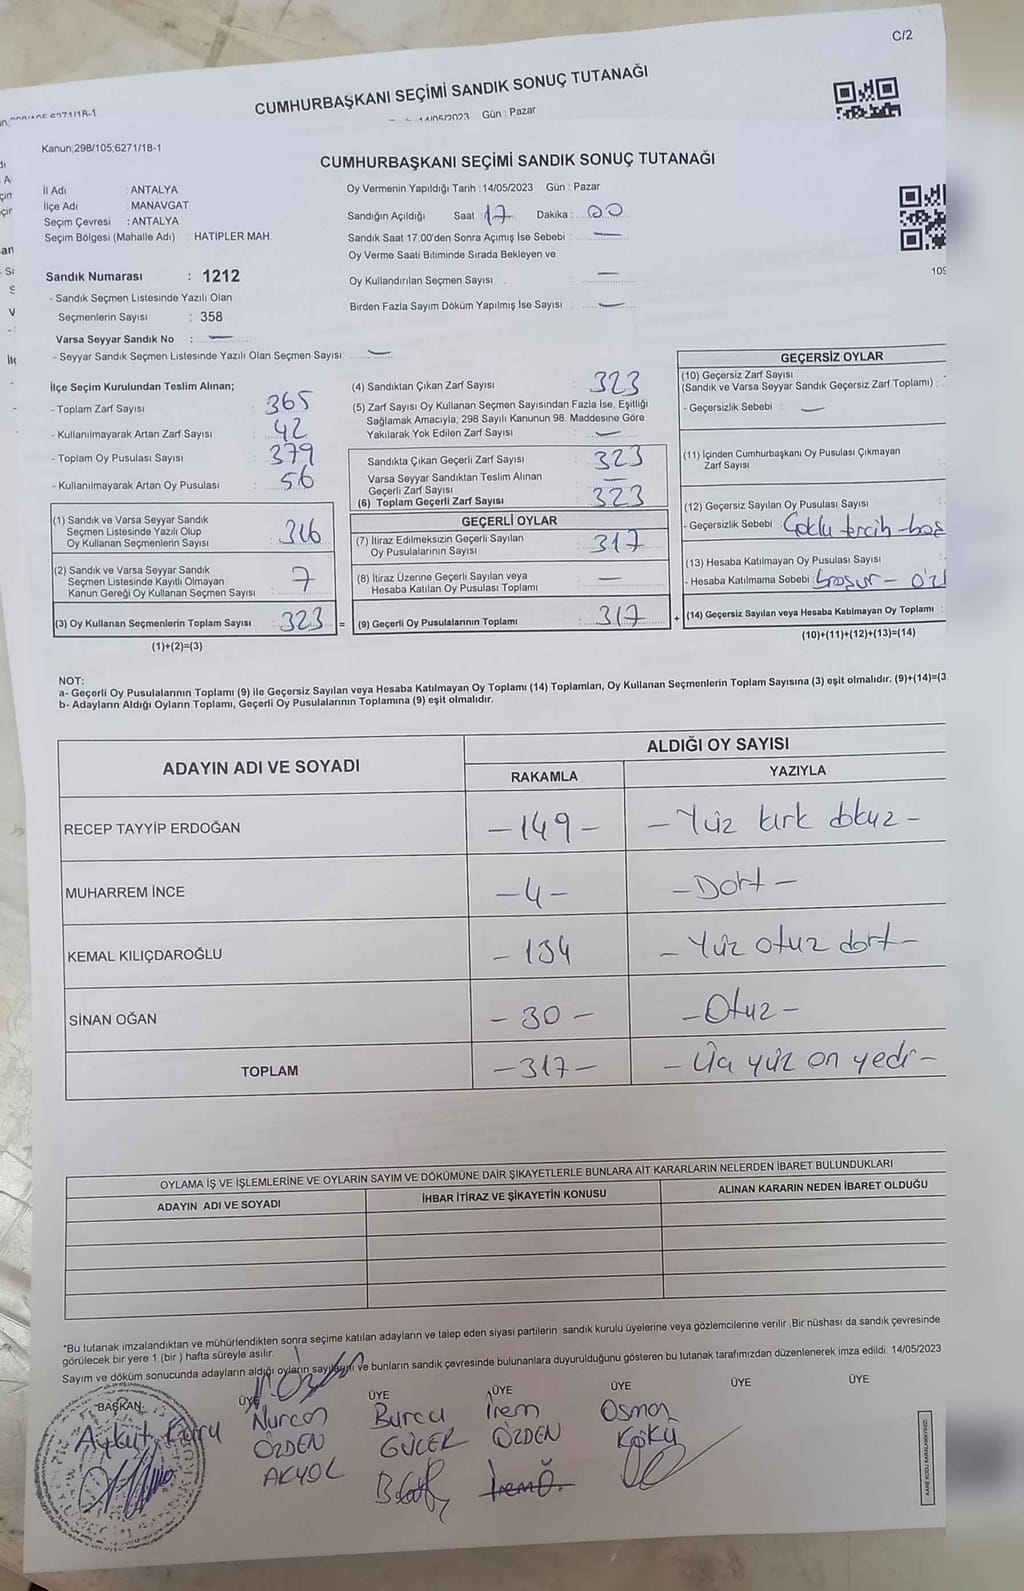 C/2
CUMHURBAŞKANI SEÇİMİ SANDIK SONUÇ TUTANAĞI
14/05/2023 Gün : Pazar
Kanun;298/105;6271/18-1
CUMHURBAŞKANI SEÇİMİ SANDIK SONUÇ TUTANAĞI
İl Adı : ANTALYA
İlçe Adı : MANAVGAT
Seçim Çevresi : ANTALYA
Seçim Bölgesi (Mahalle Adı) : HATİPLER MAH.
Oy Vermenin Yapıldığı Tarih :14/05/2023 Gün : Pazar
Sandığın Açıldığı Saat : 17 Dakika : 00
Sandık Saat 17:00'den Sonra Açımış İse Sebebi : —
Oy Verme Saati Bitiminde Sırada Bekleyen ve
Oy Kullandırılan Seçmen Sayısı : —
Birden Fazla Sayım Döküm Yapılmış İse Sayısı : —
109
Sandık Numarası : 1212
- Sandık Seçmen Listesinde Yazılı Olan
Seçmenlerin Sayısı : 358
Varsa Seyyar Sandık No : —
- Seyyar Sandık Seçmen Listesinde Yazılı Olan Seçmen Sayısı: —
İlçe Seçim Kurulundan Teslim Alınan;
- Toplam Zarf Sayısı : 365
- Kullanılmayarak Artan Zarf Sayısı : 42
- Toplam Oy Pusulası Sayısı : 379
- Kullanılmayarak Artan Oy Pusulası : 56
(1) Sandık ve Varsa Seyyar Sandık
Seçmen Listesinde Yazılı Olup
Oy Kullanan Seçmenlerin Sayısı : 316
(2) Sandık ve Varsa Seyyar Sandık
Seçmen Listesinde Kayıtlı Olmayan
Kanun Gereği Oy Kullanan Seçmen Sayısı : 7
(3) Oy Kullanan Seçmenlerin Toplam Sayısı : 323 =
(1)+(2)=(3)
(4) Sandıktan Çıkan Zarf Sayısı : 323
(5) Zarf Sayısı Oy Kullanan Seçmen Sayısından Fazla İse, Eşitliği
Sağlamak Amacıyla; 298 Sayılı Kanunun 98. Maddesine Göre
Yakılarak Yok Edilen Zarf Sayısı : —
Sandıkta Çıkan Geçerli Zarf Sayısı : 323
Varsa Seyyar Sandıktan Teslim Alınan
Geçerli Zarf Sayısı : —
(6) Toplam Geçerli Zarf Sayısı : 323
GEÇERLİ OYLAR
(7) İtiraz Edilmeksizin Geçerli Sayılan
Oy Pusulalarının Sayısı : 317
(8) İtiraz Üzerine Geçerli Sayılan veya
Hesaba Katılan Oy Pusulası Toplamı : —
(9) Geçerli Oy Pusulalarının Toplamı : 317 +
GEÇERSİZ OYLAR
(10) Geçersiz Zarf Sayısı
(Sandık ve Varsa Seyyar Sandık Geçersiz Zarf Toplamı) :
- Geçersizlik Sebebi : —
(11) İçinden Cumhurbaşkanı Oy Pusulası Çıkmayan
Zarf Sayısı
(12) Geçersiz Sayılan Oy Pusulası Sayısı
- Geçersizlik Sebebi : Çoklu tercih - boş
(13) Hesaba Katılmayan Oy Pusulası Sayısı
- Hesaba Katılmama Sebebi :
(14) Geçersiz Sayılan veya Hesaba Katılmayan Oy Toplamı :
(10)+(11)+(12)+(13)=(14)
NOT:
a- Geçerli Oy Pusulalarının Toplamı (9) ile Geçersiz Sayılan veya Hesaba Katılmayan Oy Toplamı (14) Toplamları, Oy Kullanan Seçmenlerin Toplam Sayısına (3) eşit olmalıdır. (9)+(14)=(3
b- Adayların Aldığı Oyların Toplamı, Geçerli Oy Pusulalarının Toplamına (9) eşit olmalıdır.
ADAYIN ADI VE SOYADI
ALDIĞI OY SAYISI
RAKAMLA YAZIYLA
RECEP TAYYİP ERDOĞAN - 149 - - Yüz kırk dokuz -
MUHARREM İNCE - 4 - - Dort -
KEMAL KILIÇDAROĞLU - 134 - Yüz otuz dort -
SİNAN OĞAN - 30 - - Otuz -
TOPLAM - 317 - - Üç yüz on yedi -
OYLAMA İŞ VE İŞLEMLERİNE VE OYLARIN SAYIM VE DÖKÜMÜNE DAİR ŞİKAYETLERLE BUNLARA AİT KARARLARIN NELERDEN İBARET BULUNDUKLARI
ADAYIN ADI VE SOYADI İHBAR İTİRAZ VE ŞİKAYETİN KONUSU ALINAN KARARIN NEDEN İBARET OLDUĞU
*Bu tutanak imzalandıktan ve mühürlendikten sonra seçime katılan adayların ve talep eden siyasi partilerin sandık kurulu üyelerine veya gözlemcilerine verilir .Bir nüshası da sandık çevresinde
görülecek bir yere 1 (bir ) hafta süreyle asılır.
Sayım ve döküm sonucunda adayların aldığı oyların sayılarını ve bunların sandık çevresinde bulunanlara duyurulduğunu gösteren bu tutanak tarafımızdan düzenlenerek imza edildi. 14/05/2023
BAŞKAN ÜYE ÜYE ÜYE ÜYE ÜYE ÜYE
Aykut Nurcan Burcu İrem Osman
ÖZDEN GÜCER ÖZDEN Kökü
AKYOL İremÖ.